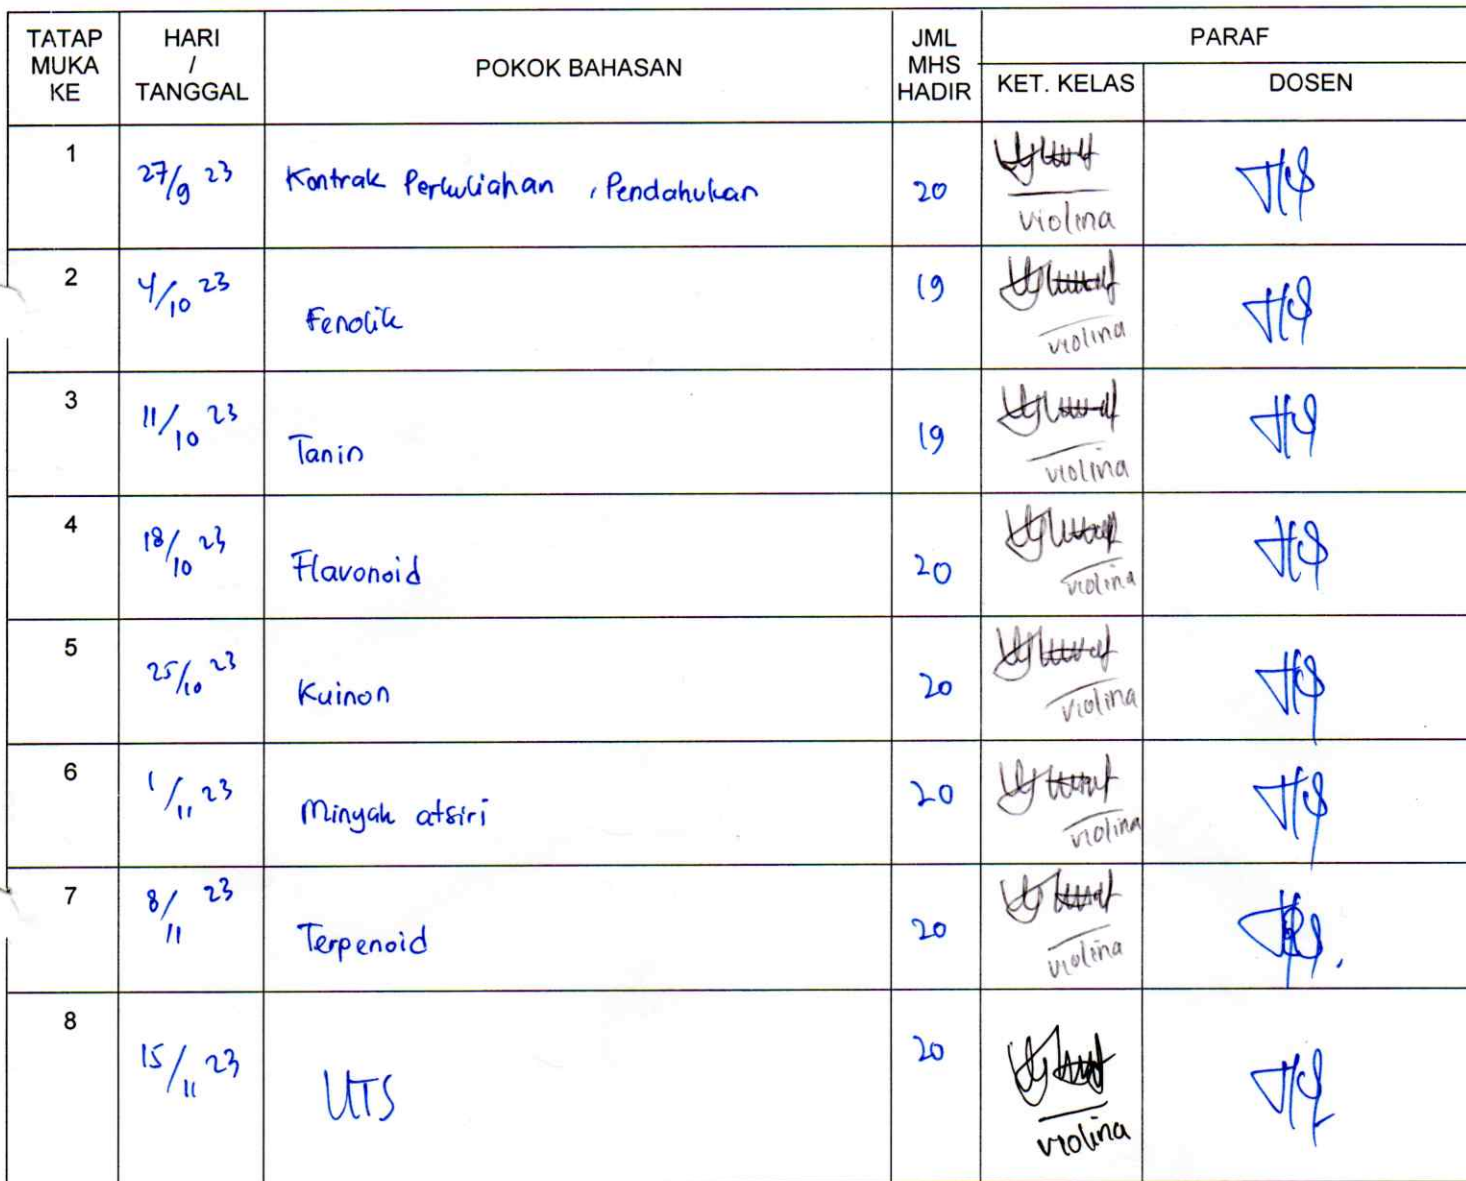 TATAP MUKA KE
HARI / TANGGAL
POKOK BAHASAN
JML MHS HADIR
PARAF
KET. KELAS
DOSEN
1 27/9 23 Kontrak Perkuliahan , Pendahuluan 20 violina
2 4/10 23 Fenolik 19 violina
3 11/10 23 Tanin 19 violina
4 18/10 23 Flavonoid 20 violina
5 25/10 23 Kuinon 20 violina
6 1/11 23 Minyak atsiri 20 violina
7 8/11 23 Terpenoid 20 violina
8 15/11 23 UTS 20 violina